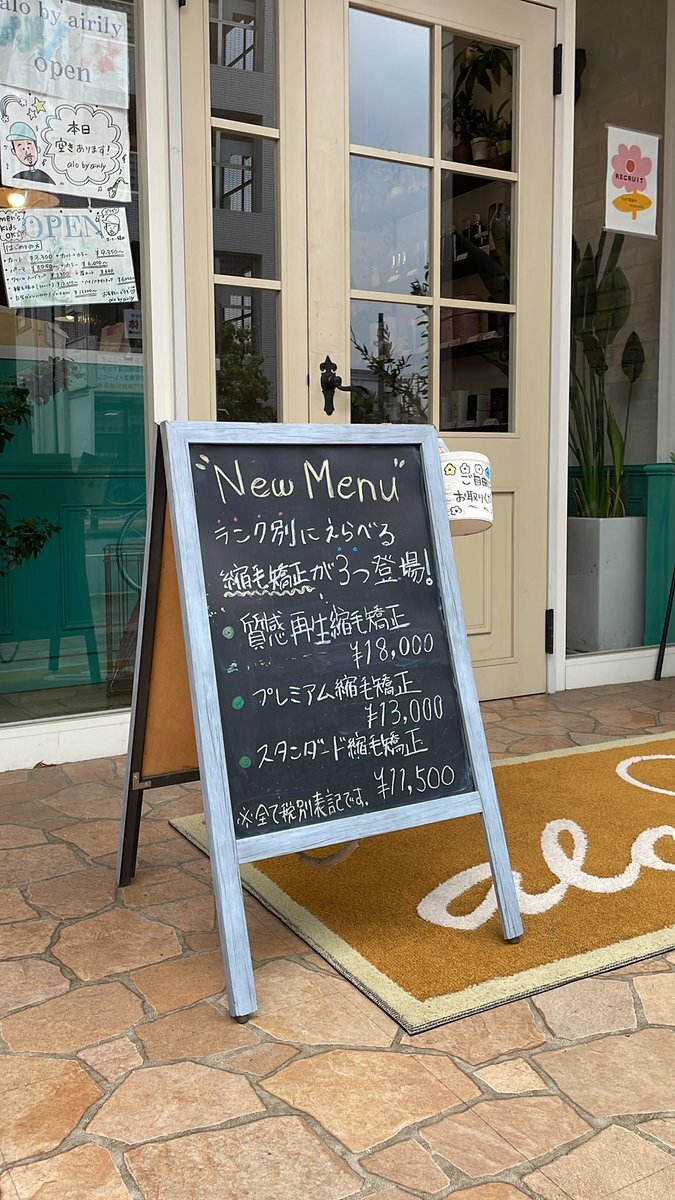 alo by airily
open
本日
空きあります!
alo by airily
men's
kids
OK!
OPEN
RECRUIT
ご自由
お取りくだ
"New Menu"
ランク別にえらべる
縮毛矯正が3つ登場!
質感再生縮毛矯正
¥18,000
プレミアム縮毛矯正
¥13,000
スタンダード縮毛矯正
¥11,500
※全て税別表記です。
alo